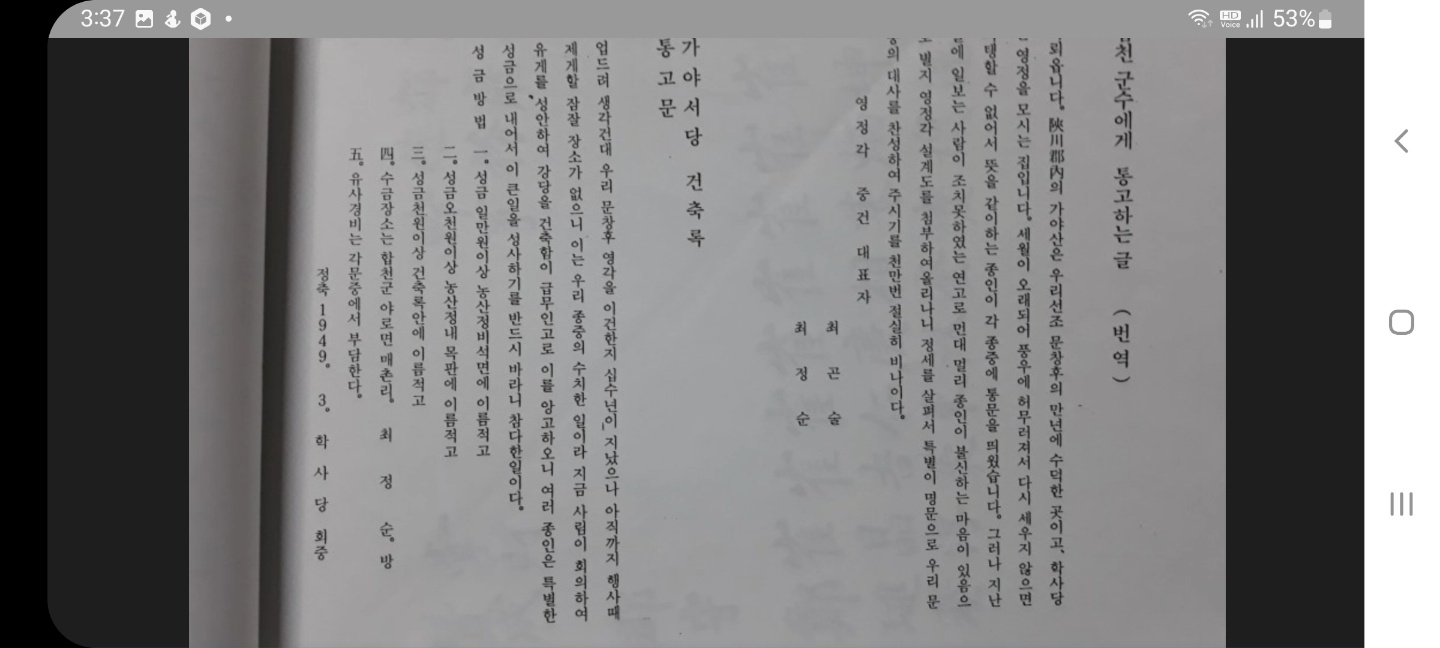 3:37
HD Voice
53%
합천 군수에게 통고하는 글 (번역)
뢰옵니다. 陜川郡內의 가야산은 우리선조 문창후의 만년에 수덕한 곳이고, 학사당
영정을 모시는 집입니다. 세월이 오래되어 풍우에 허무러져서 다시 세우지 않으면
탱할 수 없어서 뜻을 같이하는 종인이 각 종중에 통문을 띄웠습니다. 그러나 지난
에 일보는 사람이 조치못하였는 연고로 먼대 멀리 종인이 불신하는 마음이 있음으
별지 영정각 실계도를 첨부하여올리나니 정세를 살펴서 특별이 명문으로 우리 문
의 대사를 찬성하여 주시기를 천만번 절실히 비나이다.
영정각 중건 대표자
최 곤 술
최 정 순
가야서당 건축록
통고문
업드려 생각건대 우리 문창후 영각을 이건한지 십수년이 지났으나 아직까지 행사때
제게할 잠잘 장소가 없으니 이는 우리 종중의 수치한 일이라 지금 사림이 회의하여
유계를 성안하여 강당을 건축함이 급무인고로 이를 앙고하오니 여러 종인은 특별한
성금으로 내어서 이 큰일을 성사하기를 반드시 바라니 참다한일이다.
성금방법 一. 성금 일만원이상 농산정비석면에 이름적고
二. 성금오천원이상 농산정내 목판에 이름적고
三. 성금천원이상 건축록안에 이름적고
四. 수금장소는 합천군 야로면 매촌리. 최 정 순. 방
五. 유사경비는 각문중에서 부담한다.
정축 1949. 3. 학사당 회중